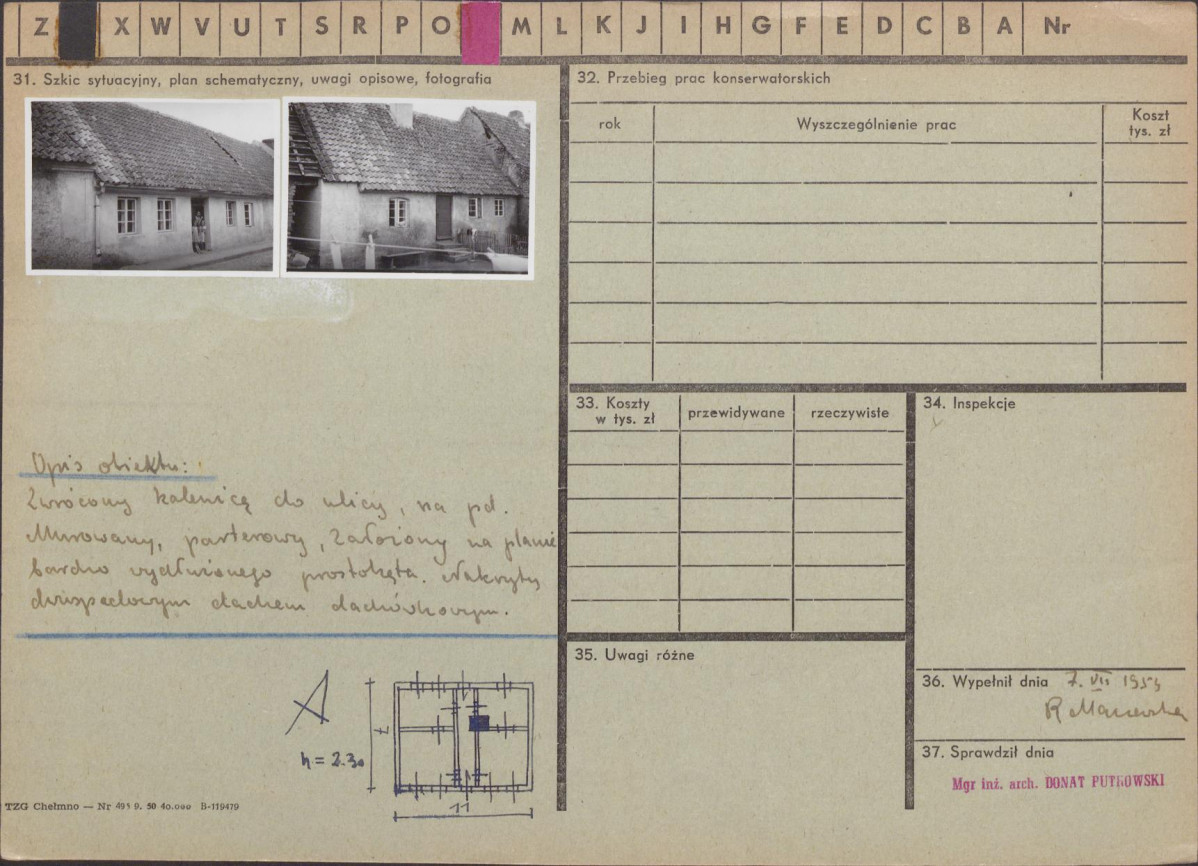 Z X W V U T S R P O M L K J I H G F E D C B A Nr
31. Szkic sytuacyjny, plan schematyczny, uwagi opisowe, fotografia
Opis obiektu:
Zwrócony kalenicą do ulicy, na pd.
Murowany, parterowy, założony na planie
bardzo wydłużonego prostokąta. Nakryty
dwuspadowym dachem dachówkowym.
h = 2.30
7
11
TZG Chełmno — Nr 495 9. 50 40.000 B-119479
32. Przebieg prac konserwatorskich
rok Wyszczególnienie prac Koszt
tys. zł
33. Koszty
w tys. zł
przewidywane rzeczywiste
34. Inspekcje
35. Uwagi różne
36. Wypełnił dnia 7. VII
37. Sprawdził dnia
Mgr inż. arch. DONAT PUTKOWSKI